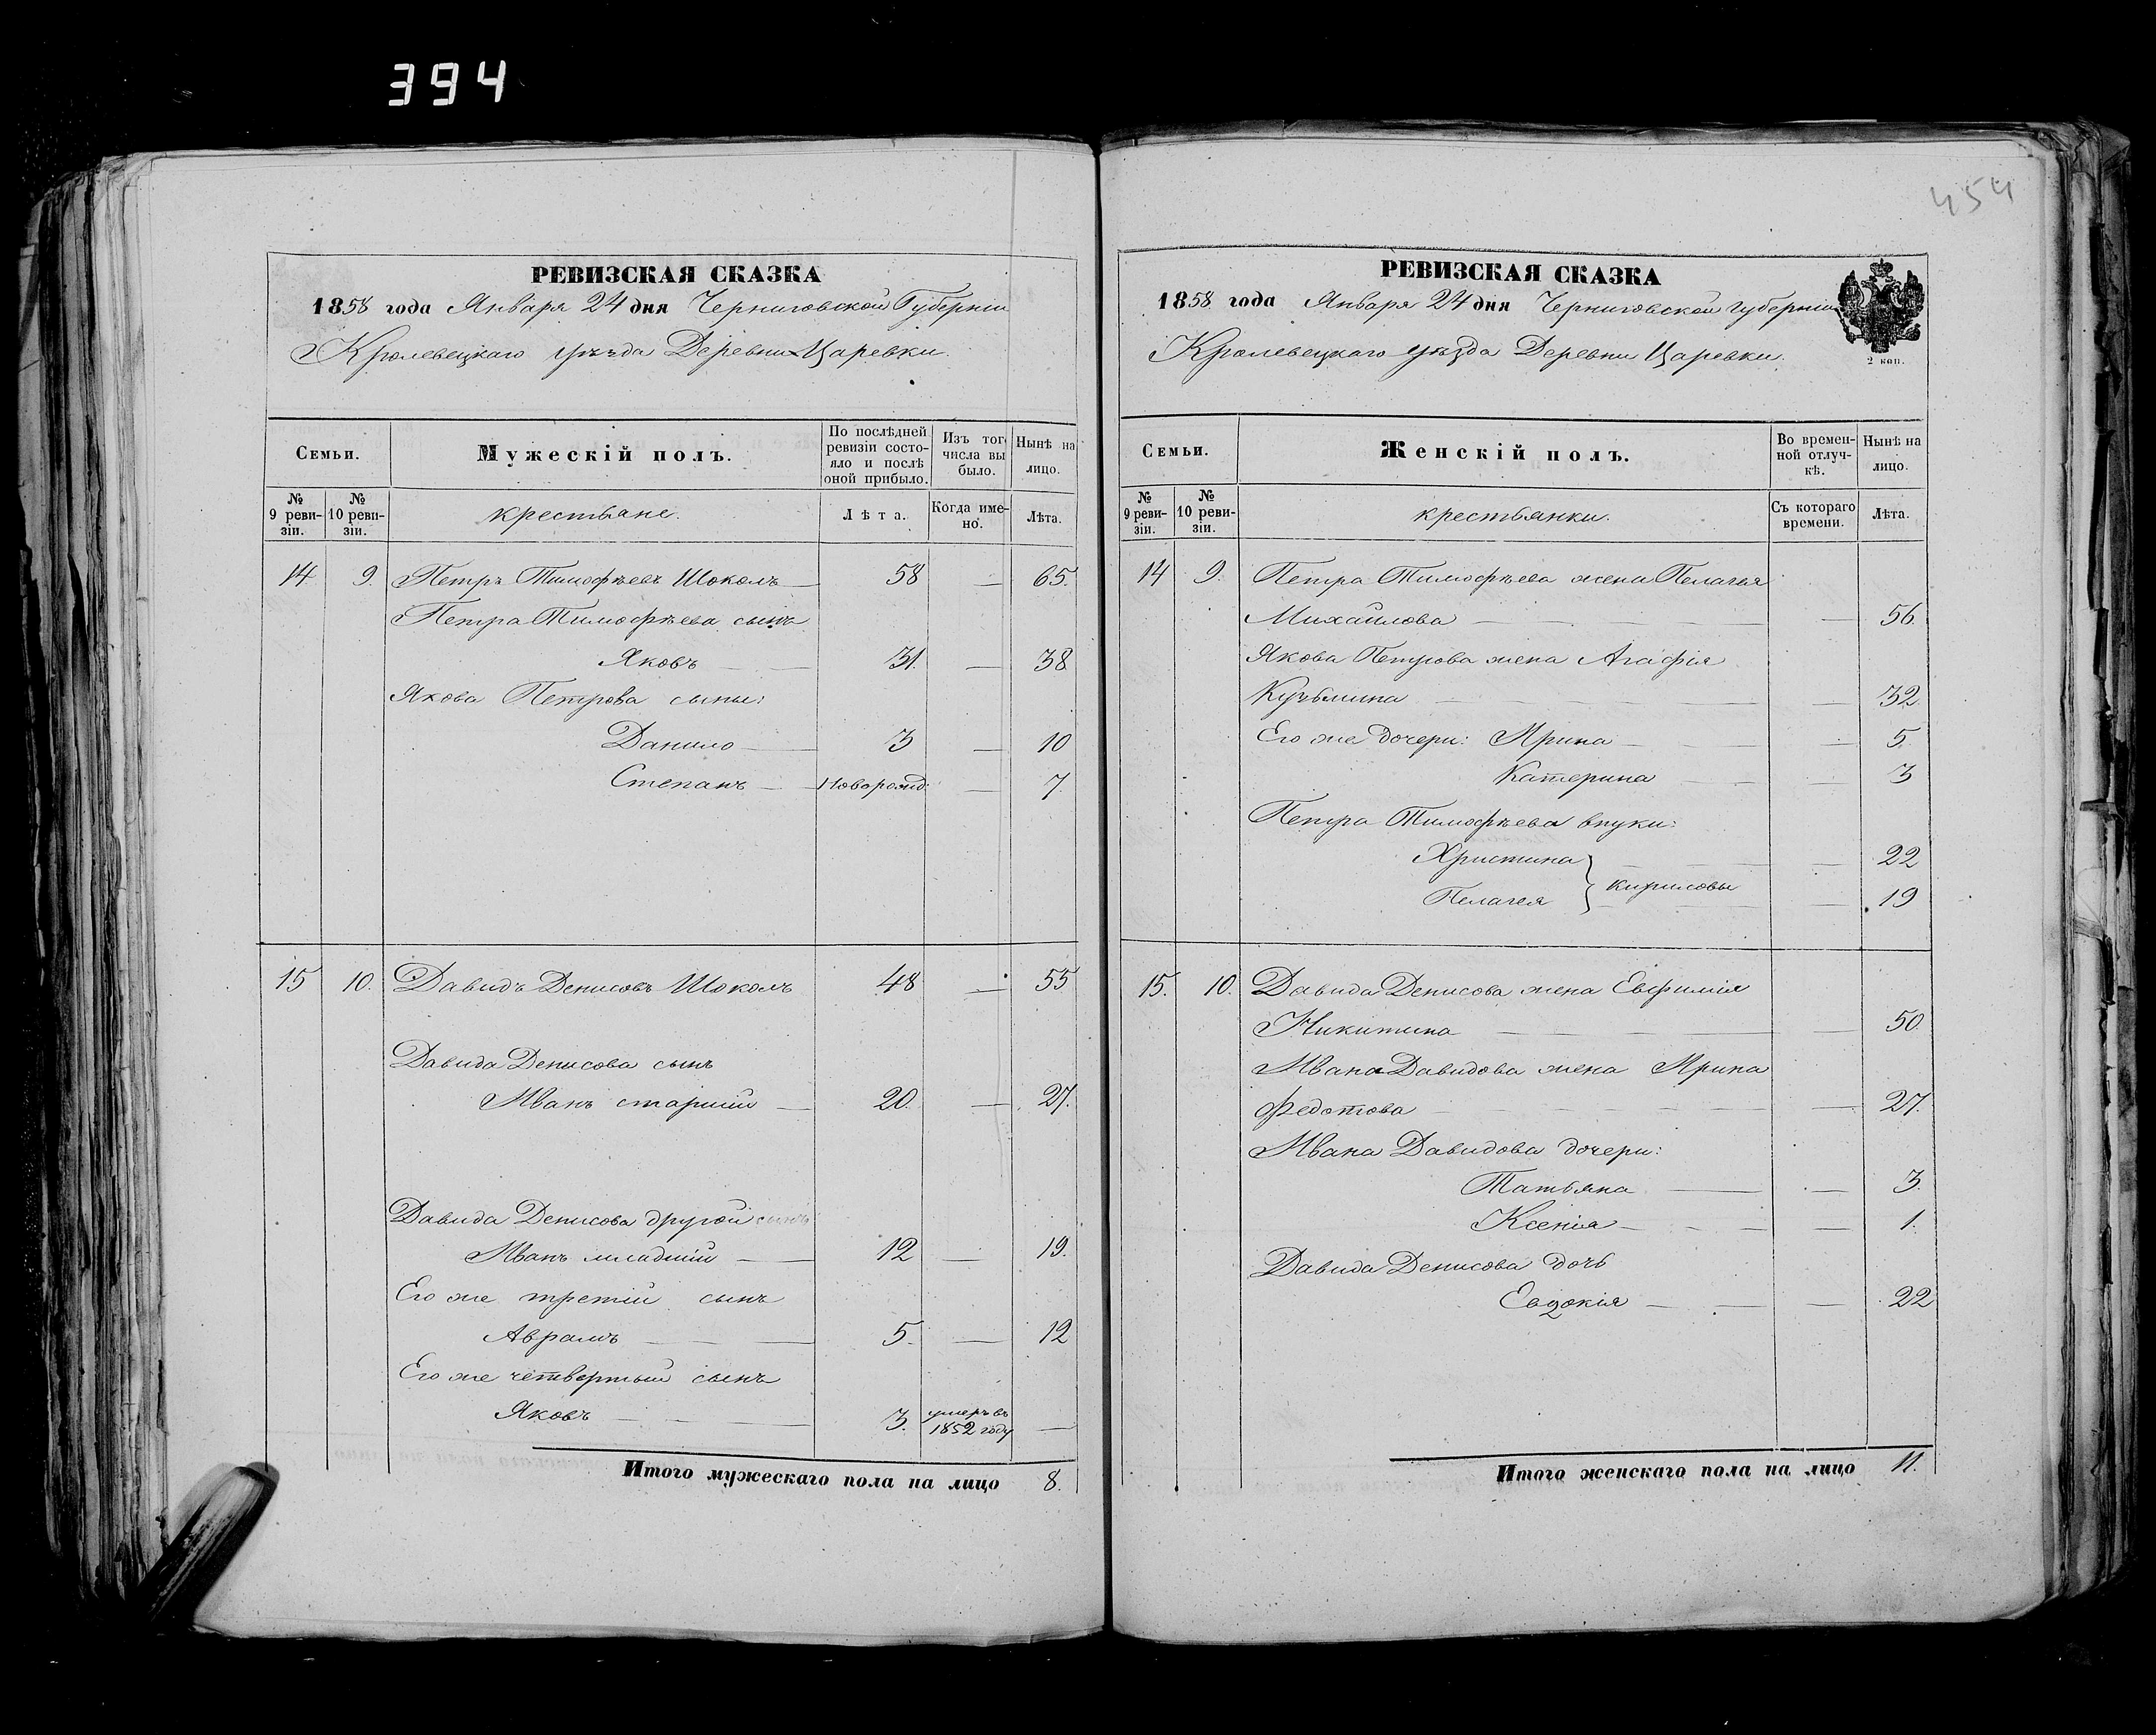 394
454
РЕВИЗСКАЯ СКАЗКА
1858 года Января 24 дня Черниговской Губерніи
Кролевецкаго уѣзда Деревни Царевки.
Семьи.
Мужескій полъ.
По послѣдней ревизіи состояло и послѣ оной прибыло.
Изъ того числа выбыло.
Нынѣ на лицо.
№ 9 ревизіи.
№ 10 ревизіи.
крестьяне.
Лѣта.
Когда имено.
Лѣта.
14 9. Петръ Тимофѣевъ Шоколъ — 58 — 65.
Петра Тимофѣева сынъ
Яковъ — 31. — 38
Якова Петрова сыны:
Данило — 3 — 10
Степанъ — Новорожд: — 7
15 10. Давидъ Денисовъ Шоколъ 48 — 55
Давида Денисова сынъ
Иванъ старшій — 20. — 27.
Давида Денисова другой сынъ
Иванъ младшій — 12 — 19.
Его же третій сынъ
Аврамъ — 5. — 12
Его же четвертый сынъ
Яковъ — 3. умеръ въ 1852 году —
Итого мужескаго пола на лицо 8.
РЕВИЗСКАЯ СКАЗКА
1858 года Января 24 дня Черниговской губерніи
Кролевецкаго уѣзда Деревни Царевки.
2 коп.
Семьи.
Женскій полъ.
Во временной отлучкѣ.
Нынѣ на лицо.
№ 9 ревизіи.
№ 10 ревизіи.
крестьянки.
Съ котораго времени.
Лѣта.
14 9. Петра Тимофѣева жена Пелагея
Михайлова — — 56.
Якова Петрова жена Агафія
Кузьмина — — 32
Его же дочери: Ярина — — 5.
Катерина — — 3
Петра Тимофѣева внуки:
Христина — — 22
Кириловы
Пелагея — — 19
15. 10. Давида Денисова жена Евфимія
Никитина — — 50.
Ивана Давидова жена Ярина
Федотова — — 27.
Ивана Давидова дочери:
Татьяна — — 3.
Ксенія — — 1.
Давида Денисова дочь
Евдокія — — 22
Итого женскаго пола на лицо 11.